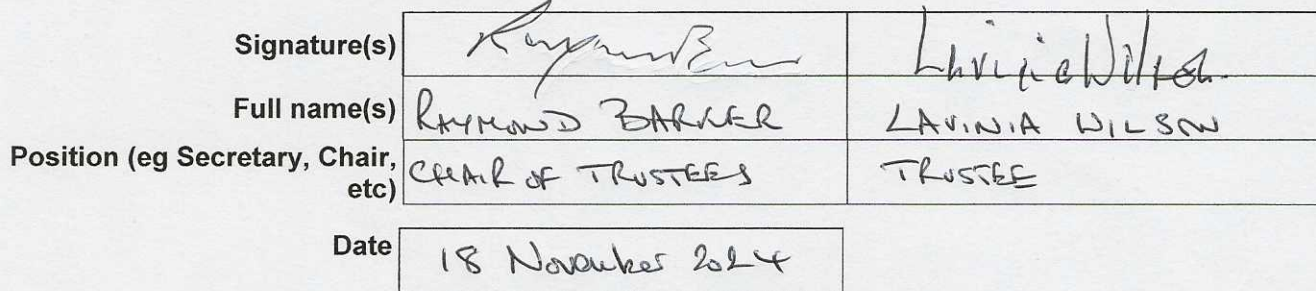 Signature(s) Lavinia Wilson
Full name(s) RAYMOND BARKER LAVINIA WILSON
Position (eg Secretary, Chair, etc) CHAIR OF TRUSTEES TRUSTEE
Date 18 November 2024